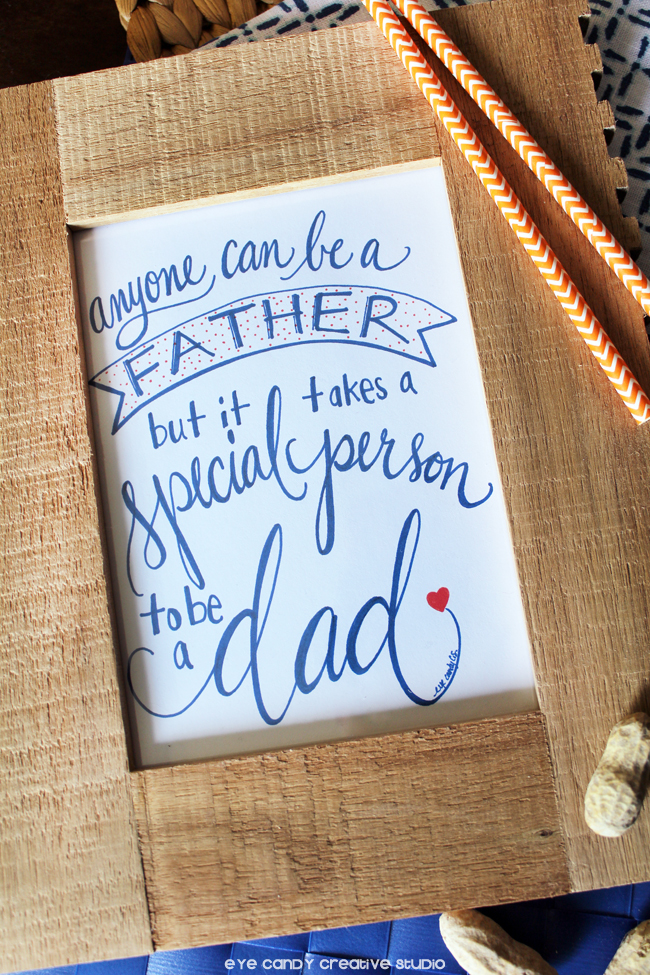 anyone can be a
FATHER
but it takes a
special person
to be
a
dad
eye candy cs.
EYE CANDY CREATIVE STUDIO